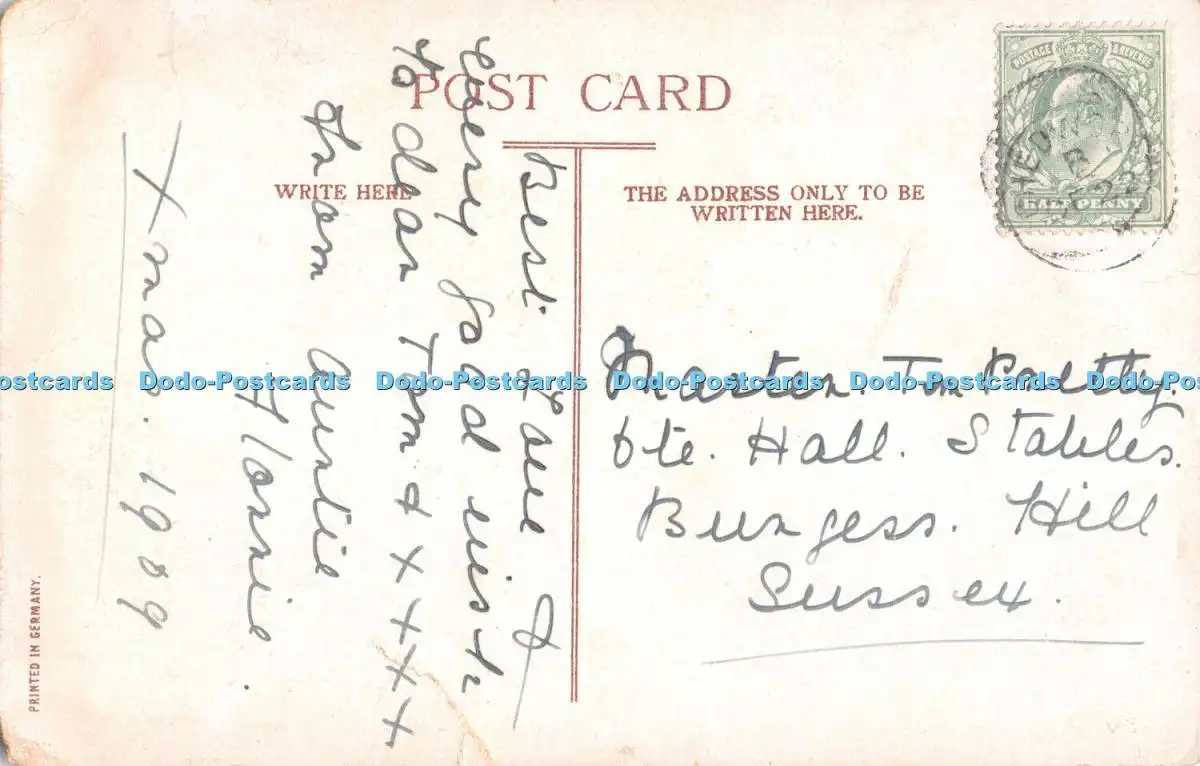 POST CARD
WRITE HERE
THE ADDRESS ONLY TO BE
WRITTEN HERE.
POSTAGE & REVENUE
HALFPENNY
Best Love &
every good wish
to dear Tom x x x x x
From Auntie
Florrie.
Xmas. 1909
Master. Tom Pretty.
Ote. Hall. Stables.
Burgess. Hill
Sussex.
Dodo-Postcards Dodo-Postcards Dodo-Postcards Dodo-Postcards Dodo-Postcards
PRINTED IN GERMANY.